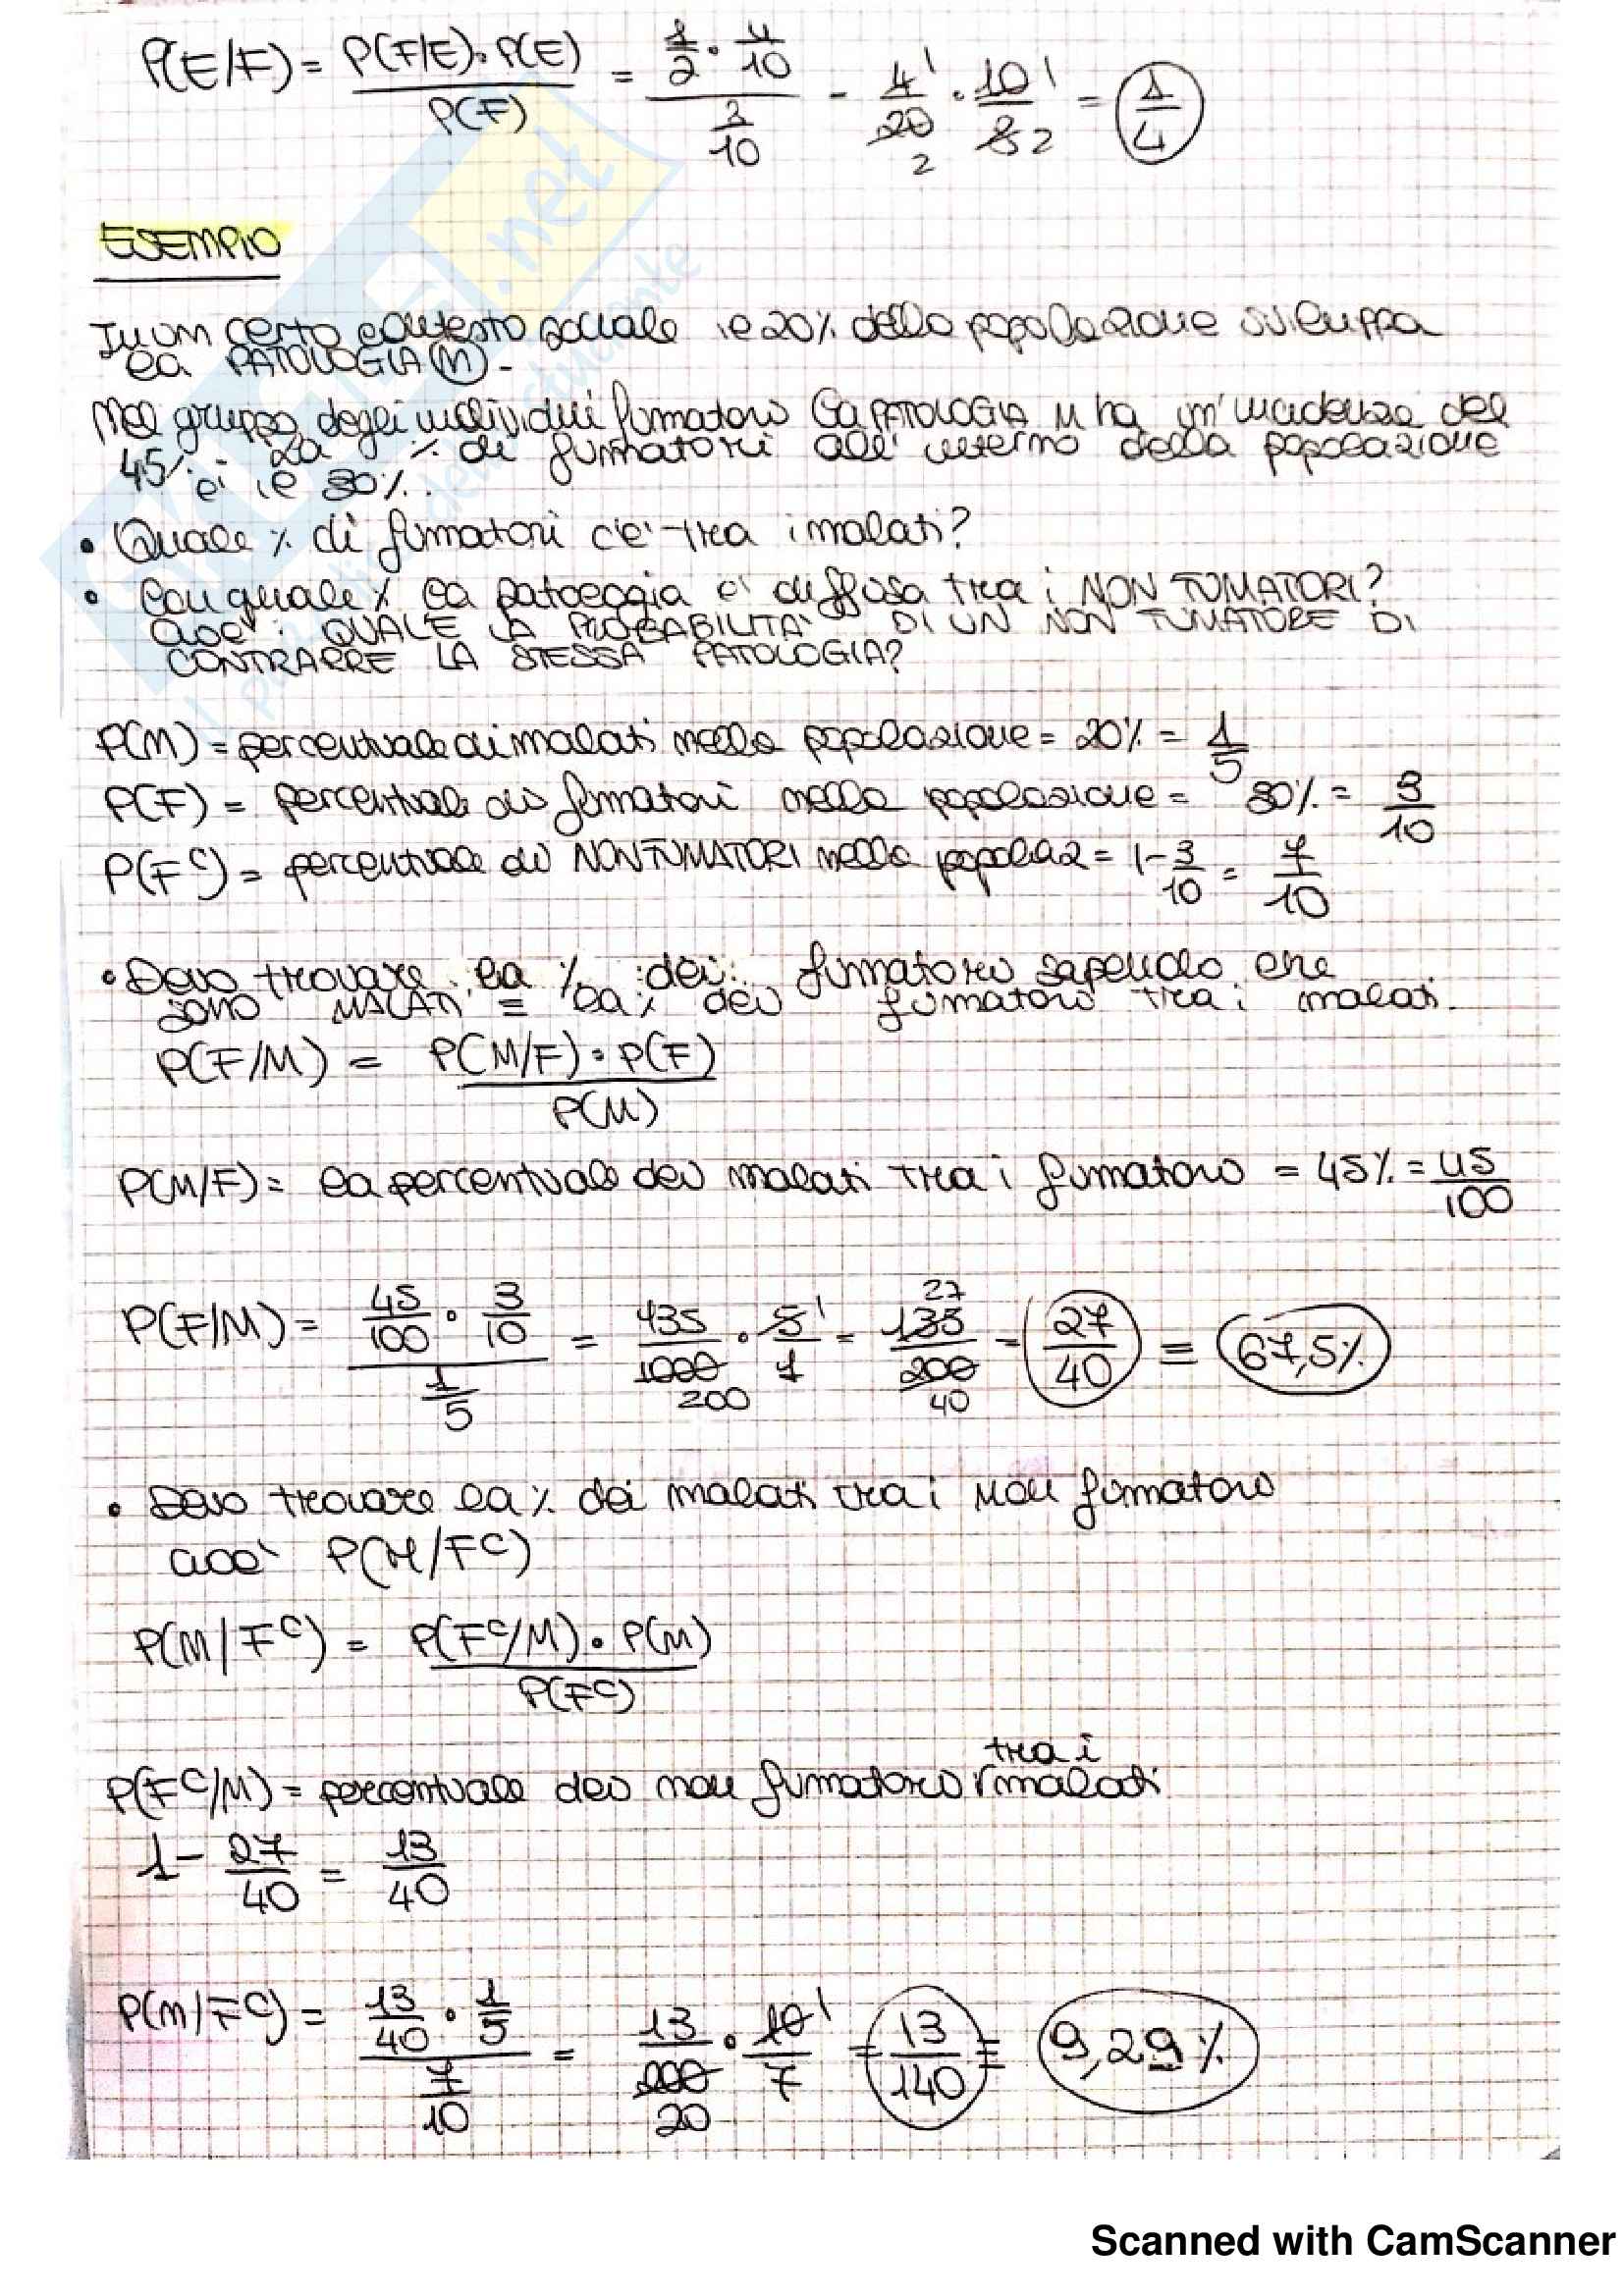 P(E/F) = P(F/E)·P(E) / P(F) = 1/2 · 4/10 / 10 - 4 1 / 20 2 · 10 1 / 8 2 = 1/4
ESEMPIO
In un certo contesto sociale il 20% della popolazione sviluppa
la PATOLOGIA (M).
Nel gruppo degli individui fumatori la PATOLOGIA M ha un'incidenza del
45%. La % di fumatori all'interno della popolazione
è il 30%.
• Quale % di fumatori c'è tra i malati?
• Con quale % la patologia è diffusa tra i NON FUMATORI?
cioè: QUALE LA PROBABILITA' DI UN NON FUMATORE DI
CONTRARRE LA STESSA PATOLOGIA?
P(M) = percentuale di malati nella popolazione = 20% = 1/5
P(F) = percentuale di fumatori nella popolazione = 30% = 3/10
P(F^c) = percentuale di NON FUMATORI nella popolaz = 1 - 3/10 = 7/10
• Devo trovare la % dei fumatori sapendo che
sono MALATI = la % dei fumatori tra i malati.
P(F/M) = P(M/F) · P(F) / P(M)
P(M/F) = la percentuale dei malati tra i fumatori = 45% = 45/100
P(F/M) = 45/100 · 3/10 / 1/5 = 135/1000 200 · 5 1 / 1 = 135 27 / 200 40 = 27/40 = 67,5%
• Devo trovare la % dei malati tra i non fumatori
cioè P(M/F^c)
P(M/F^c) = P(F^c/M) · P(M) / P(F^c)
P(F^c/M) = percentuale dei non fumatori tra i malati
1 - 27/40 = 13/40
P(M/F^c) = 13/40 · 1/5 / 7/10 = 13/200 20 · 10 1 / 7 = 13/140 = 9,29%
Scanned with CamScanner